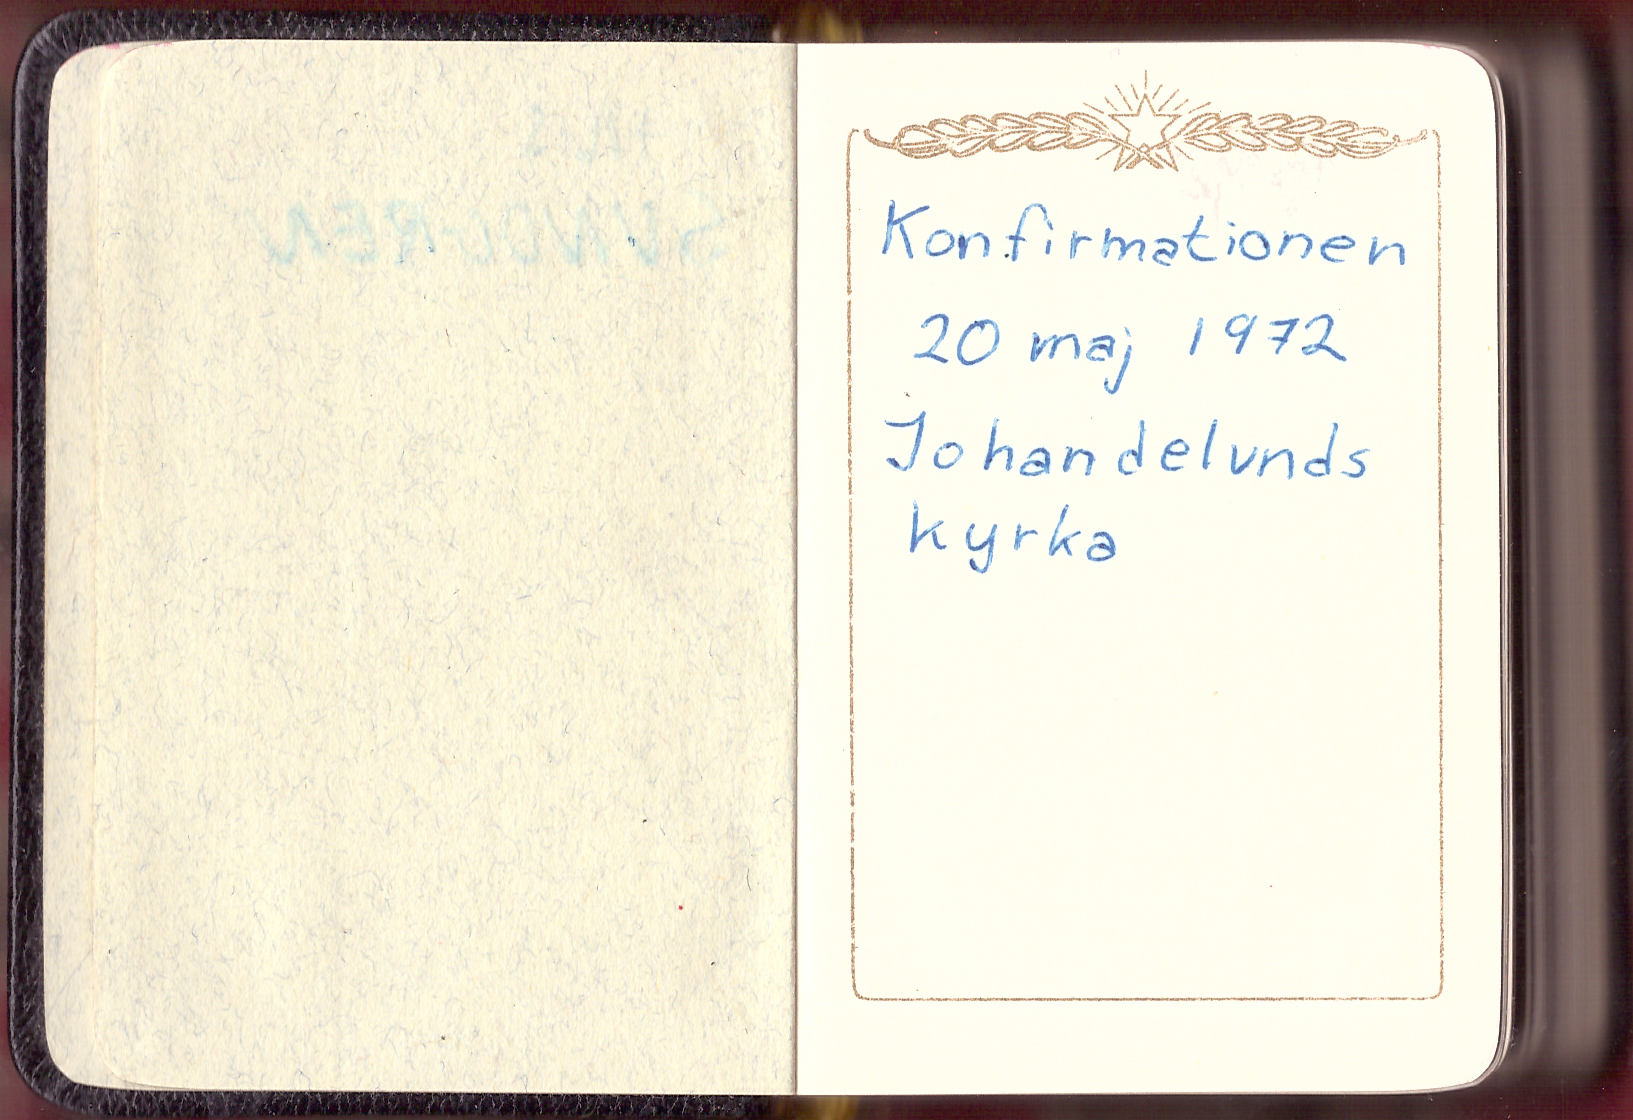 Konfirmationen
20 maj 1972
Johandelunds
kyrka